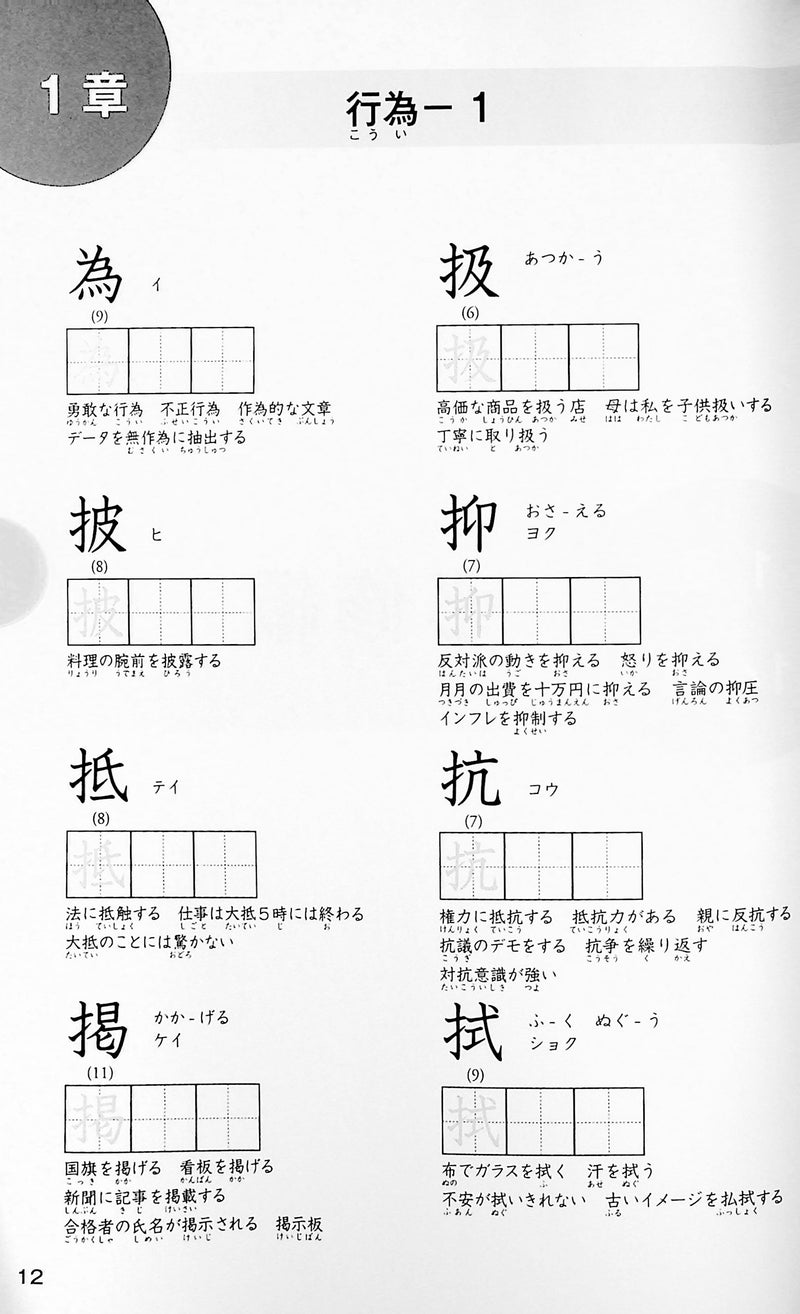 1章
行為－1
こうい
為 イ
(9)
為
勇敢な行為 不正行為 作為的な文章
ゆうかん こうい ふせいこうい さくいてき ぶんしょう
データを無作為に抽出する
むさくい ちゅうしゅつ
扱 あつか-う
(6)
扱
高価な商品を扱う店 母は私を子供扱いする
こうか しょうひん あつか みせ はは わたし こどもあつか
丁寧に取り扱う
ていねい と あつか
披 ヒ
(8)
披
料理の腕前を披露する
りょうり うでまえ ひろう
抑 おさ-える
ヨク
(7)
抑
反対派の動きを抑える 怒りを抑える
はんたいは うご おさ いか おさ
月月の出費を十万円に抑える 言論の抑圧
つきづき しゅっぴ じゅうまんえん おさ げんろん よくあつ
インフレを抑制する
よくせい
抵 テイ
(8)
抵
法に抵触する 仕事は大抵5時には終わる
ほう ていしょく しごと たいてい じ お
大抵のことには驚かない
たいてい おどろ
抗 コウ
(7)
抗
権力に抵抗する 抵抗力がある 親に反抗する
けんりょく ていこう ていこうりょく おや はんこう
抗議のデモをする 抗争を繰り返す
こうぎ こうそう く かえ
対抗意識が強い
たいこういしき つよ
掲 かか-げる
ケイ
(11)
掲
国旗を掲げる 看板を掲げる
こっき かか かんばん かか
新聞に記事を掲載する
しんぶん きじ けいさい
合格者の氏名が掲示される 掲示板
ごうかくしゃ しめい けいじ けいじばん
拭 ふ-く ぬぐ-う
ショク
(9)
拭
布でガラスを拭く 汗を拭う
ぬの ふ あせ ぬぐ
不安が拭いきれない 古いイメージを払拭する
ふあん ぬぐ ふる ふっしょく
12